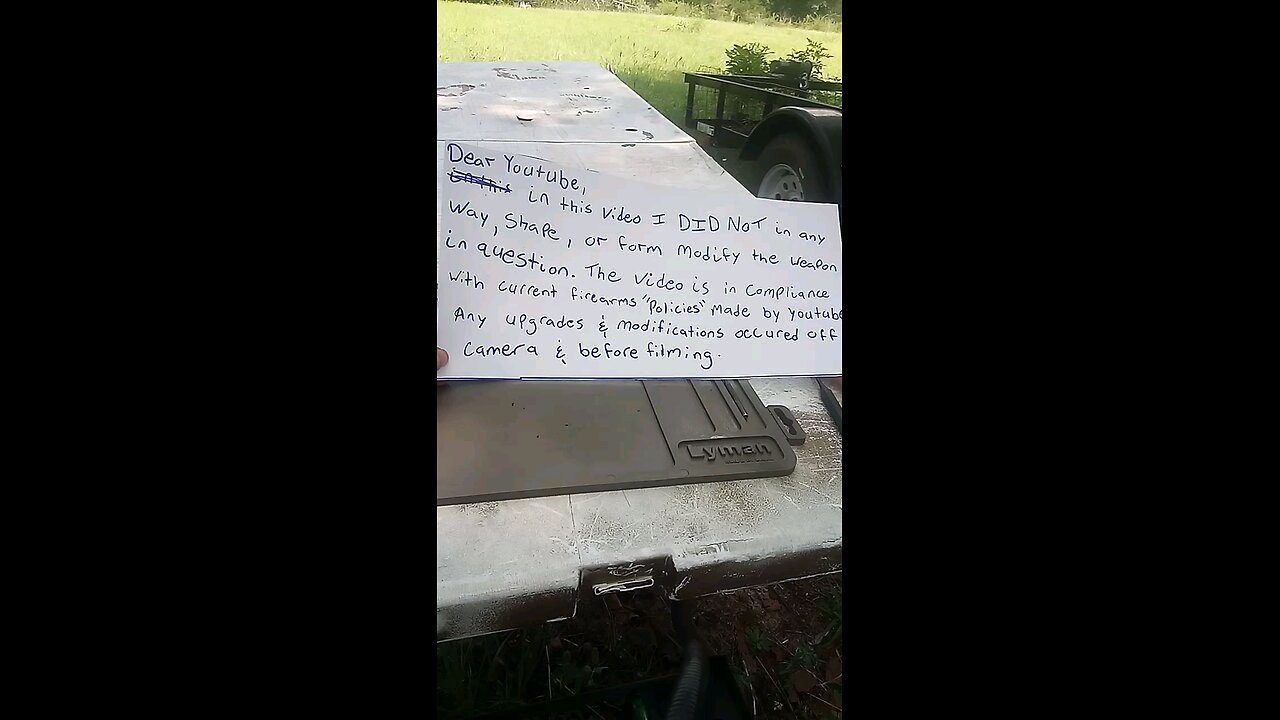 Dear Youtube,
in this video I DID NOT in any
way, shape, or form modify the weapon
in question. The video is in compliance
with current firearms "policies" made by youtube
Any upgrades & modifications occured off
camera & before filming.
Lyman